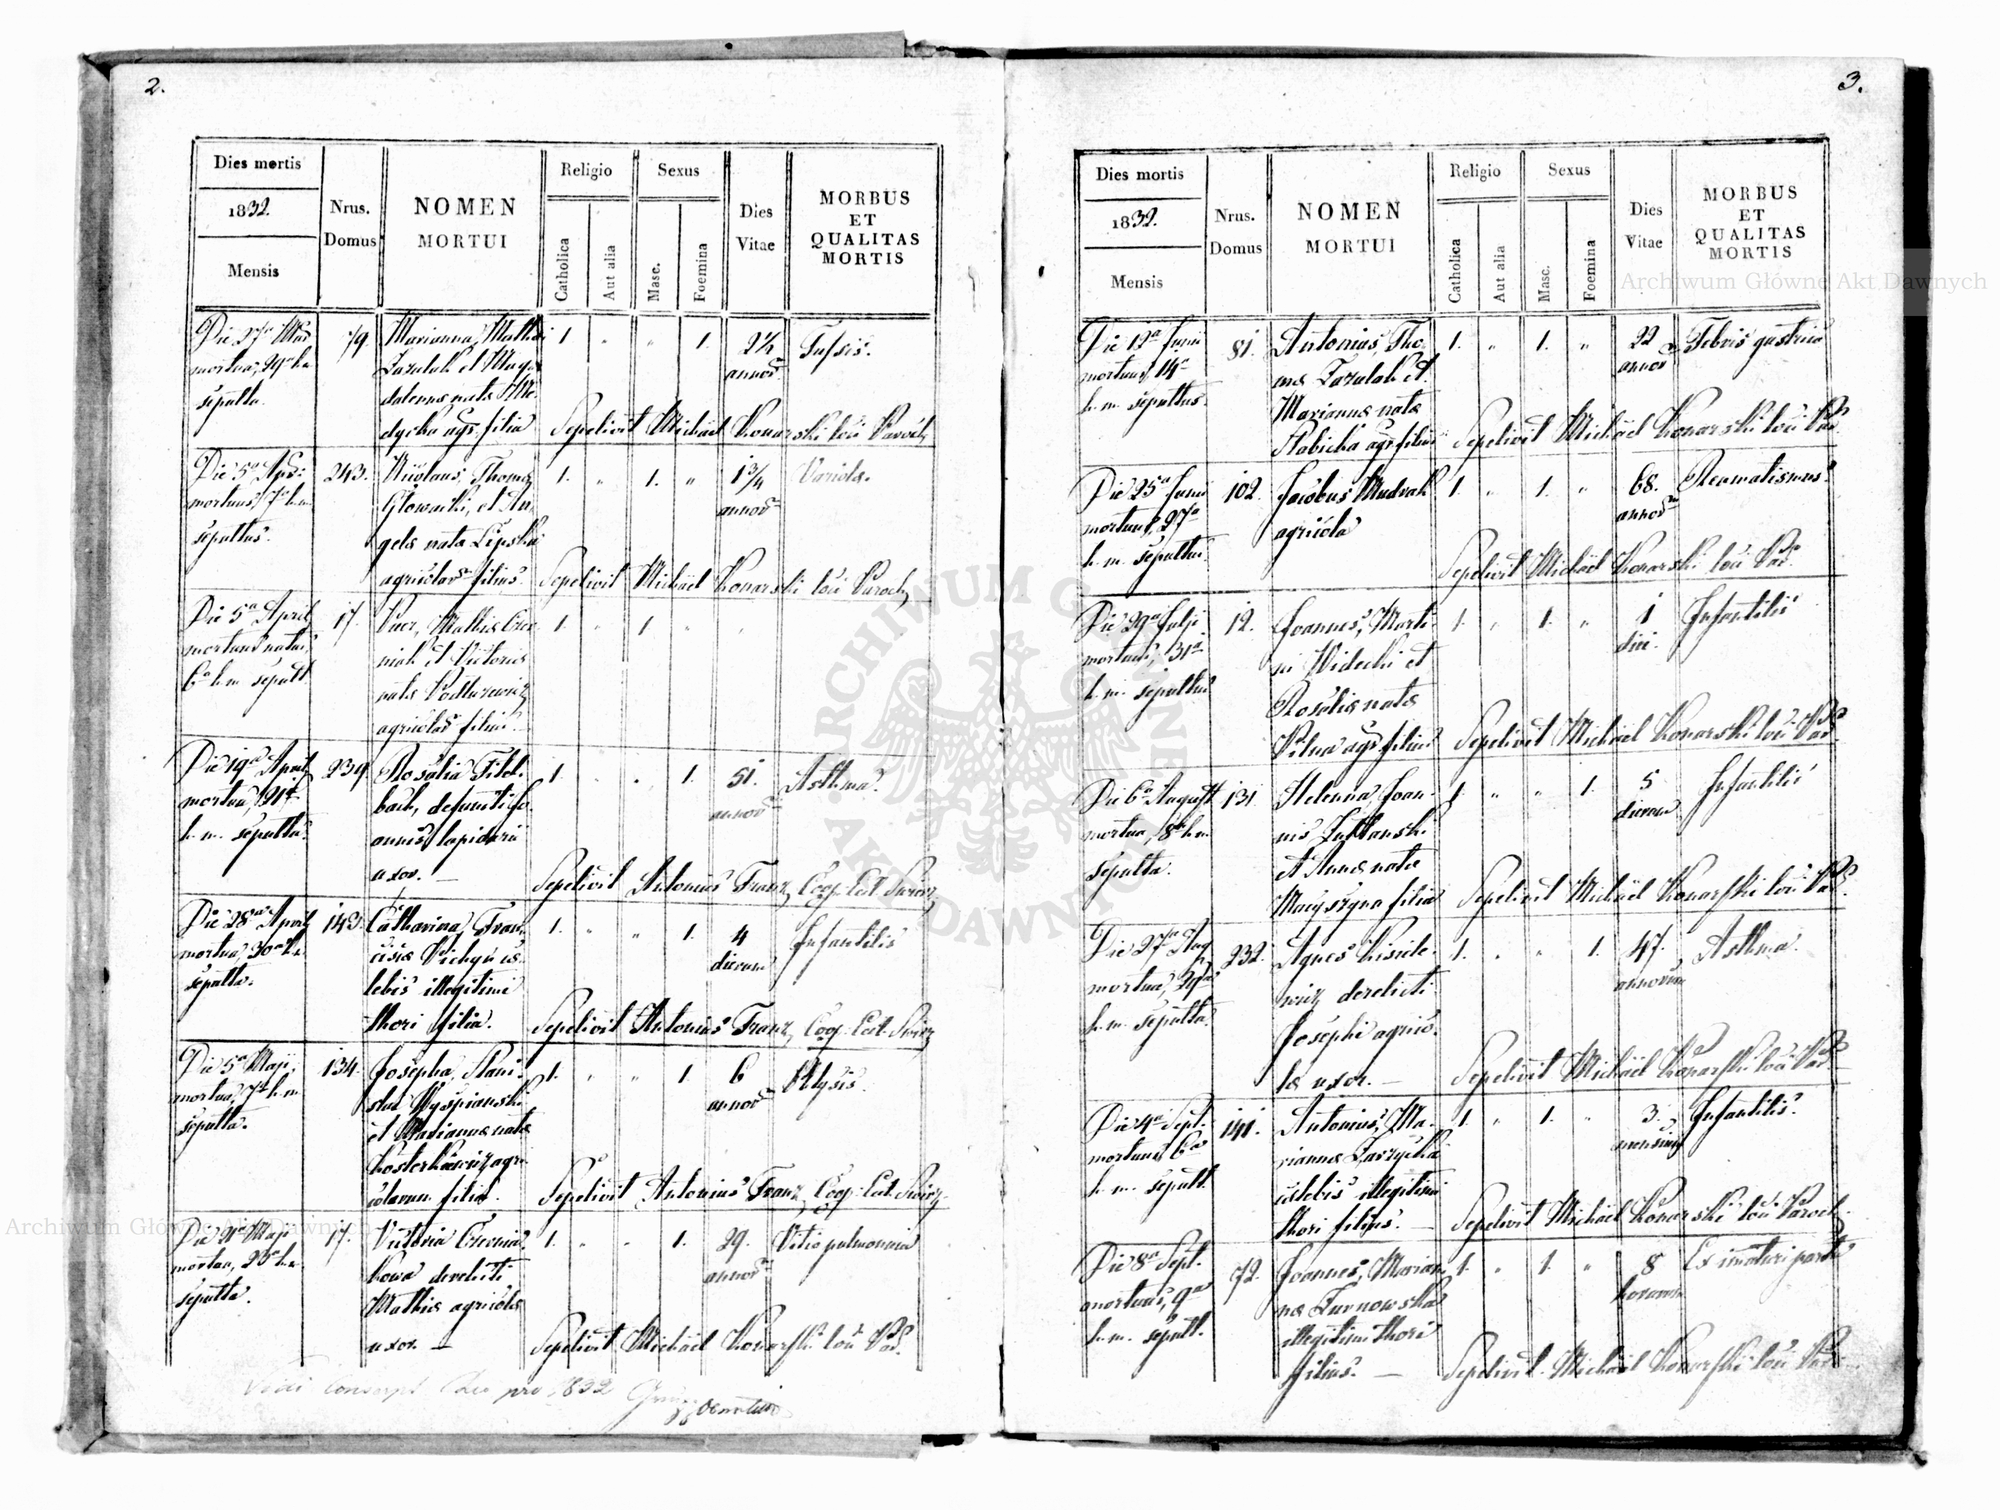 2.
Dies mortis
1832.
Mensis
Nrus.
Domus
NOMEN
MORTUI
Religio
Catholica
Aut alia
Sexus
Masc.
Foemina
Dies
Vitae
MORBUS
ET
QUALITAS
MORTIS
Die 27a
mortua, 29a h.
sepulta.
79.
Marianna, Mathei
Zazulak et Mag-
dalenae nata
agr. filia
1. " " 1.
2½
annor
Tussis.
Sepelivit Michael Konarski loci Paroch
Die 5a Apr.
mortuus, 7a h.m.
sepultus.
243.
Nicolaus, Thoma
Głowacki, et An-
gela nata Lipska
agricolar filius.
1. " 1. "
1¾
annor
Variola.
Sepelivit Michael Konarski loci Paroch
Die 5a April
mortuus natus,
6a h.m. sepult.
17.
Puer, Mathiae Czer-
niak et Victoria
nata
agricolar filius.
1. " 1 "
Die 19a April
mortua, 21a
h.m. sepulta.
239.
Rosalia
defuncti Jo-
annis lapidarii
uxor. —
1. " " 1.
51.
annor
Asthma.
Sepelivit Antonius Franz Coop. Ecl. Swirz
Die 28a April
mortua, 30a h.
sepulta.
143.
Catharina, Fran-
cisca
illegitimi
thori filia.
1. " " 1.
4
dierum
Infantilis
Sepelivit Antonius Franz Coop. Ecl. Swirz
Die 5a Maji
mortua, 7a h.m
sepulta.
134.
Josepha, Stani-
slai Wyspianski
et Marianna nata
agri-
colarum filia.
1. " " 1.
6
annor
Phtysis.
Sepelivit Antonius Franz Coop. Ecl. Swirz
Die 21a Maji
mortua, 23a h.
sepulta.
17.
Victoria Czernia-
kowa derelicti
Mathiae agricolae
uxor —
1. " " 1.
29.
annor
Vitio pulmonum
Sepelivit Michael Konarski loci Par.
pro 1832
3.
Dies mortis
1832.
Mensis
Nrus.
Domus
NOMEN
MORTUI
Religio
Catholica
Aut alia
Sexus
Masc.
Foemina
Dies
Vitae
MORBUS
ET
QUALITAS
MORTIS
Die 12a Junii
mortuus, 14a
h.m. sepultus.
81.
Antonius, Tho-
mae Zazulak et
Marianna nata
Słabicka agr. filius
1. " 1. "
22
annor
Febris gastrica
Sepelivit Michael Konarski loci Par.
Die 25a Junii
mortuus, 27a
h.m. sepultus.
102.
Jacobus Mudrak
agricola
1. " 1. "
68.
annor
Reumatismus
Sepelivit Michael Konarski loci Par.
Die 29a Julji
mortuus, 31a
h.m. sepultus
12.
Joannes, Marti-
ni Widecki et
Rosalia nata
agr. filius
1. " 1. "
1
diei.
Infantilis
Sepelivit Michael Konarski loci Par.
Die 6a August
mortua, 8a h.m
sepulta.
131
Helenna, Joan-
nis
et Anna nata
filia
1. " " 1.
5
dierum
Infantilis
Sepelivit Michael Konarski loci Par.
Die 27a Aug
mortua, 29a
h.m. sepulta.
232.
Agnes Kisiele-
wicz derelicti
Josephi agrico-
la uxor. —
1. " " 1.
47.
annorum
Asthma.
Sepelivit Michael Konarski loci Par.
Die 4a Sept.
mortuus, 6a
h.m. sepult.
141.
Antonius, Ma-
rianna Zarzycka
illegitimi
thori filius. —
1. " 1. "
3.
mensium
Infantilis.
Sepelivit Michael Konarski loci Paroch.
Die 8a Sept.
mortuus, 9a
h.m. sepult.
72.
Joannes, Marian-
na Zarnowska
illegitimi thori
filius. —
1. " 1. "
8
horarum
Ex
Sepelivit Michael Konarski loci Par.
ARCHIWUM GŁÓWNE AKT DAWNYCH
Archiwum Główne Akt Dawnych
Archiwum Główne Akt Dawnych